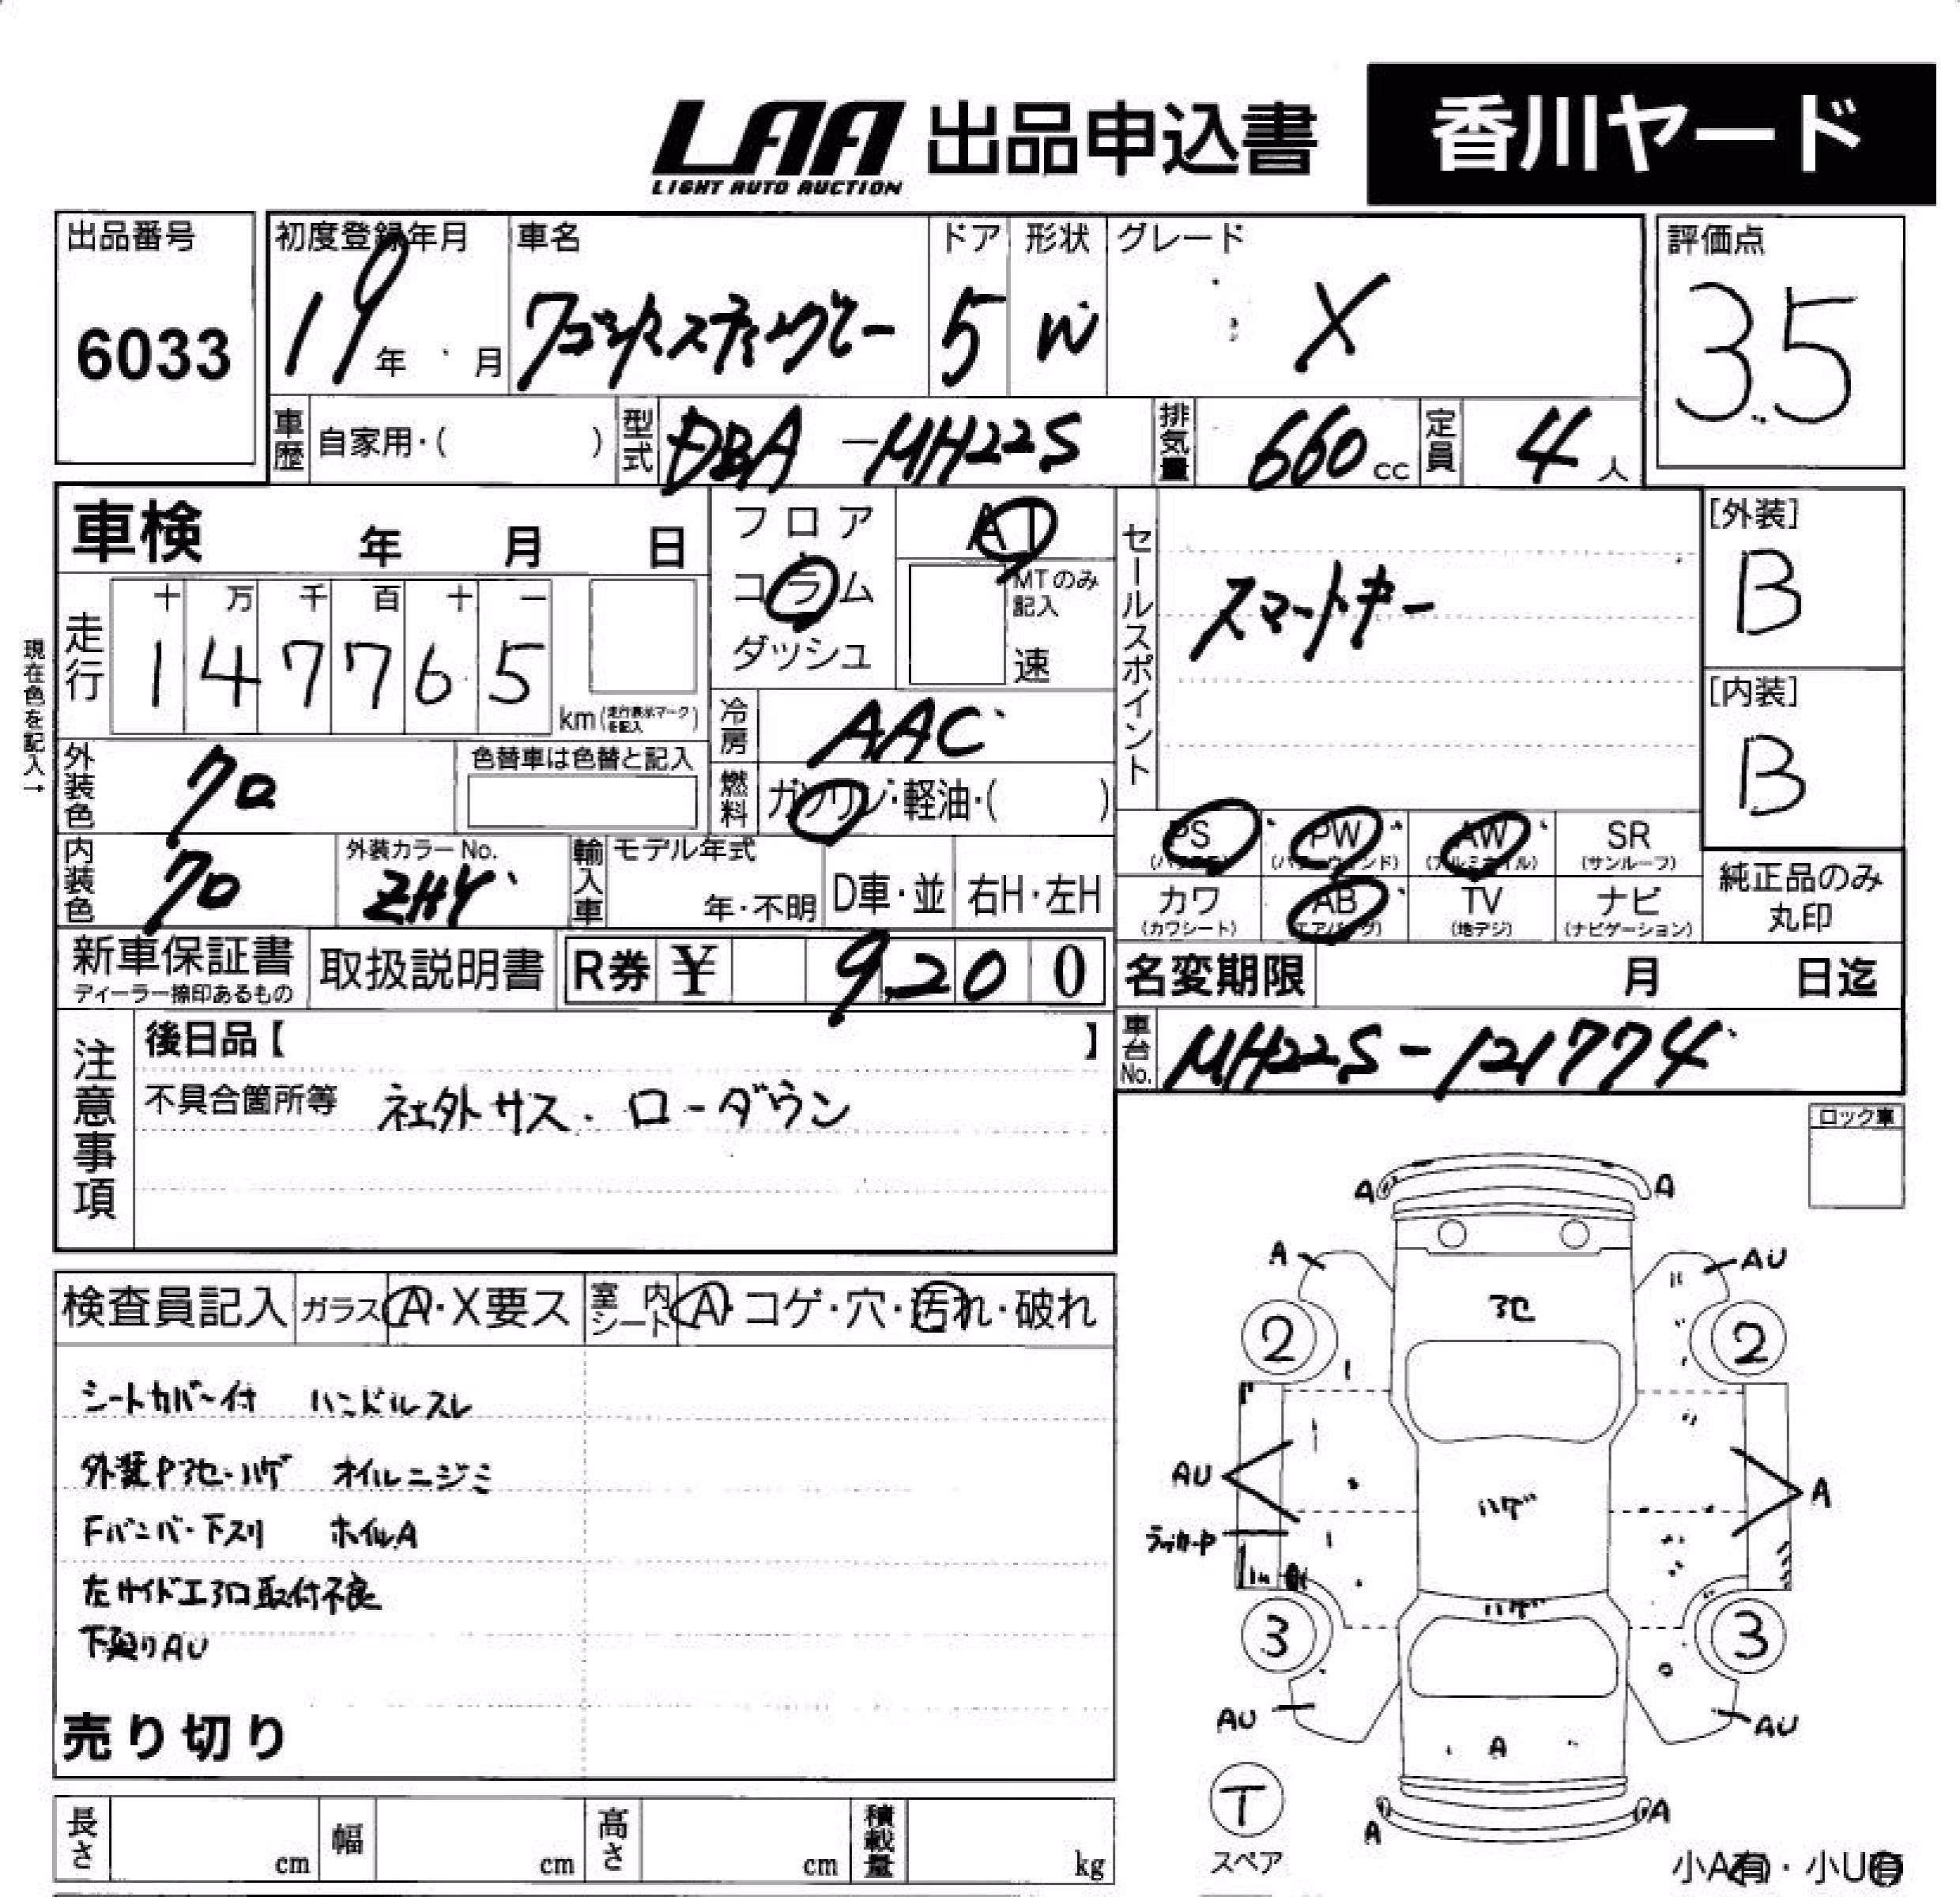 LAA 出品申込書 香川ヤード
LIGHT AUTO AUCTION
出品番号 6033
初度登録年月 19年 月
車名 ワゴンRスティングレー
ドア 5
形状 W
グレード X
評価点 3.5
車歴 自家用・( )
型式 DBA-MH22S
排気量 660cc
定員 4人
車検 年 月 日
フロア
コラム
ダッシュ
AT
MTのみ記入
速
セールスポイント スマートキー
[外装] B
[内装] B
現在色を記入→
走行 十 万 千 百 十 一
1 4 7 7 6 5 km (走行表示マークを記入)
冷房 AAC
燃料 ガソリン・軽油・( )
外装色 クロ
色替車は色替と記入
内装色 クロ
外装カラーNo. ZHY
輸入車 モデル年式 年・不明 D車・並 右H・左H
PS PW AW SR
(パワステ) (パワーウィンド) (アルミホイル) (サンルーフ)
カワ AB TV ナビ
(カワシート) (エアバッグ) (地デジ) (ナビゲーション)
純正品のみ丸印
新車保証書
ディーラー捺印あるもの
取扱説明書
R券 ¥ 9,200
名変期限 月 日迄
車台No. MH22S-121774
注意事項
後日品【 】
不具合箇所等 社外サス.ローダウン
ロック車
検査員記入 ガラス A・X要ス 室内シート A・コゲ・穴・汚れ・破れ
シートカバー付 ハンドルスレ
外装Pアセ・ハゲ オイルニジミ
Fバンパ・下スリ ホイルA
左サイドエアロ取付不良
下廻りAU
売り切り
A A
A AU
アセ
2 2
AU ハゲ A
ラッカーP
ハゲ
3 3
AU AU
A
T
スペア
A A
小A有・小U有
長さ cm 幅 cm 高さ cm 積載量 kg